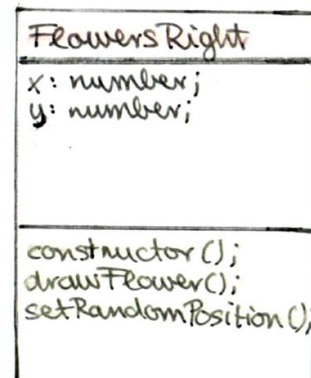 FlowersRight
x: number;
y: number;
constructor();
drawFlower();
setRandomPosition();